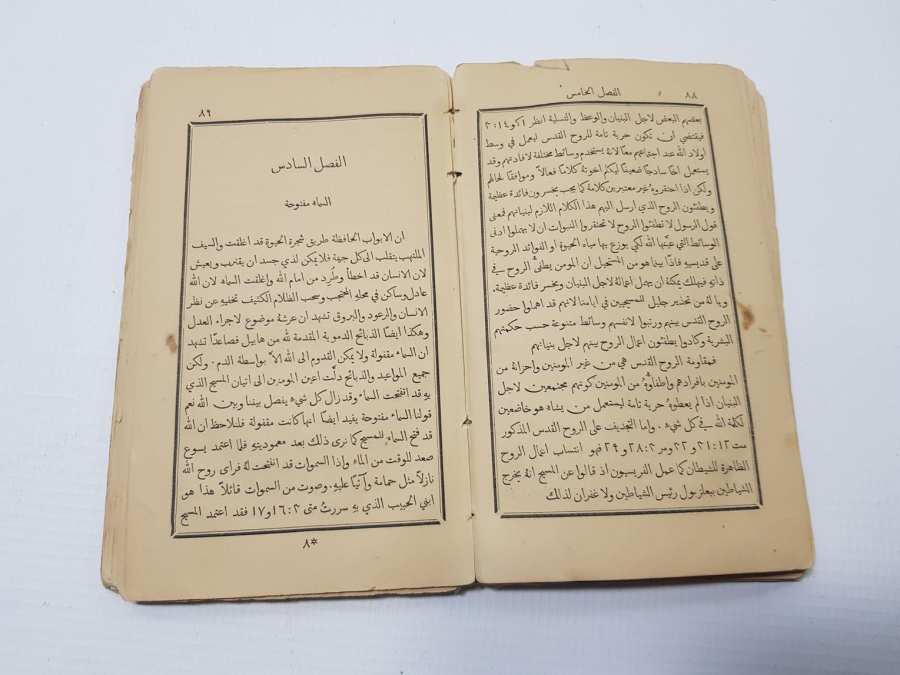 ٨٨ الفصل الخامس
بعضهم البعض لاجل البنيان والوعظ والتسلية انظر ١كو١٤:٣
فيقتضي ان تكون حرية تامة للروح القدس ليعمل في وسط
اولاد الله عند اجتماعهم معًا لانهُ يستخدم وسائط مختلفة لافادتهم وقد
يستعمل اخًا ساذجًا ضعيفًا ليكلم اخوتهُ كلامًا فعالاً وموافقًا لحالهم
ولكن اذا احتقروهُ غير معتبرين كلامهُ كما يجب يخسرون فائدة عظيمة
ويطفئون الروح الذي ارسل اليهم هذا الكلام اللازم لبنيانهم فمعنى
قول الرسول لا تطفئوا الروح لا تحتقروا النبوات ان لا يهملوا ادنى
الوسائط التي عيَّنها الله لكي يوزع بها مياه الحيوة او الفوائد الروحية
على قديسيهِ فاذًا بينما هو من المستحيل ان المومن يطفئُ الروح في
ذاتهِ فيهلك يمكنهُ ان يهمل اعمالهُ لاجل البنيان ويخسر فائدة عظيمة.
ويا لهُ من تحذير جليل للمسيحيين في ايامنا لانهم قد اهملوا حضور
الروح القدس بينهم ورتبوا لانفسهم وسائط متنوعة حسب حكمتهم
البشرية وكادوا يطفئون اعمال الروح بينهم لاجل بنيانهم
فمقاومة الروح القدس هي من غير المومنين واحزانهُ من
المومنين بافرادهم واطفاوهُ من المومنين كونهم مجتمعين لاجل
البنيان اذا لم يعطوهُ حرية تامة ليستعمل من يشاه هو خاضعين
لكلمة الله في كل شيء. واما التجديف على الروح القدس المذكور
مت١٢:٣١و٣٢ومر٣:٢٨و٢٩ فهو انتساب اعمال الروح
الظاهرة للشيطان كما عمل الفريسيون اذ قالوا عن المسيح انهُ يخرج
الشياطين ببعلزبول رئيس الشياطين ولا غفران لذلك
٨٩
الفصل السادس
السماء مفتوحة
ان الابواب الحافظة طريق شجرة الحيوة قد اغلقت والسيف
الملتهب يتقلب الى كل جهة فلا يمكن لذي جسد ان يقترب ويعيش
لان الانسان قد اخطأ وطُرد من امام الله واغلقت السماء لان الله
عادل وساكن في محلهِ المحتجب وسحب الظلام الكثيف تخفيهِ عن نظر
الانسان والرعود والبروق تشهد ان عرشهُ موضوع لاجراء العدل
وهكذا ايضًا الذبائح الدموية المقدمة لله من هابيل فصاعدًا تشهد
ان السماء مقفولة ولا يمكن القدوم الى الله الاَّ بواسطة الدم. ولكن
جميع المواعيد والذبائح دلَّت اعين المومنين الى اتيان المسيح الذي
بهِ قد انفتحت السماء وقد زال كل شيء يفصل بيننا وبين الله نعم
قولنا السماء مفتوحة يفيد ايضًا انها كانت مقفولة فلنلاحظ ان الله
قد فتح السماء للمسيح كما نرى ذلك بعد معموديتهِ فلما اعتمد يسوع
صعد للوقت من الماء واذا السموات قد انفتحت لهُ فراى روح الله
نازلاً مثل حمامة وآتيًا عليهِ. وصوت من السموات قائلاً هذا هو
ابني الحبيب الذي بهِ سررتُ متى ٣:١٦و١٧ فقد اعتمد المسيح
*٨